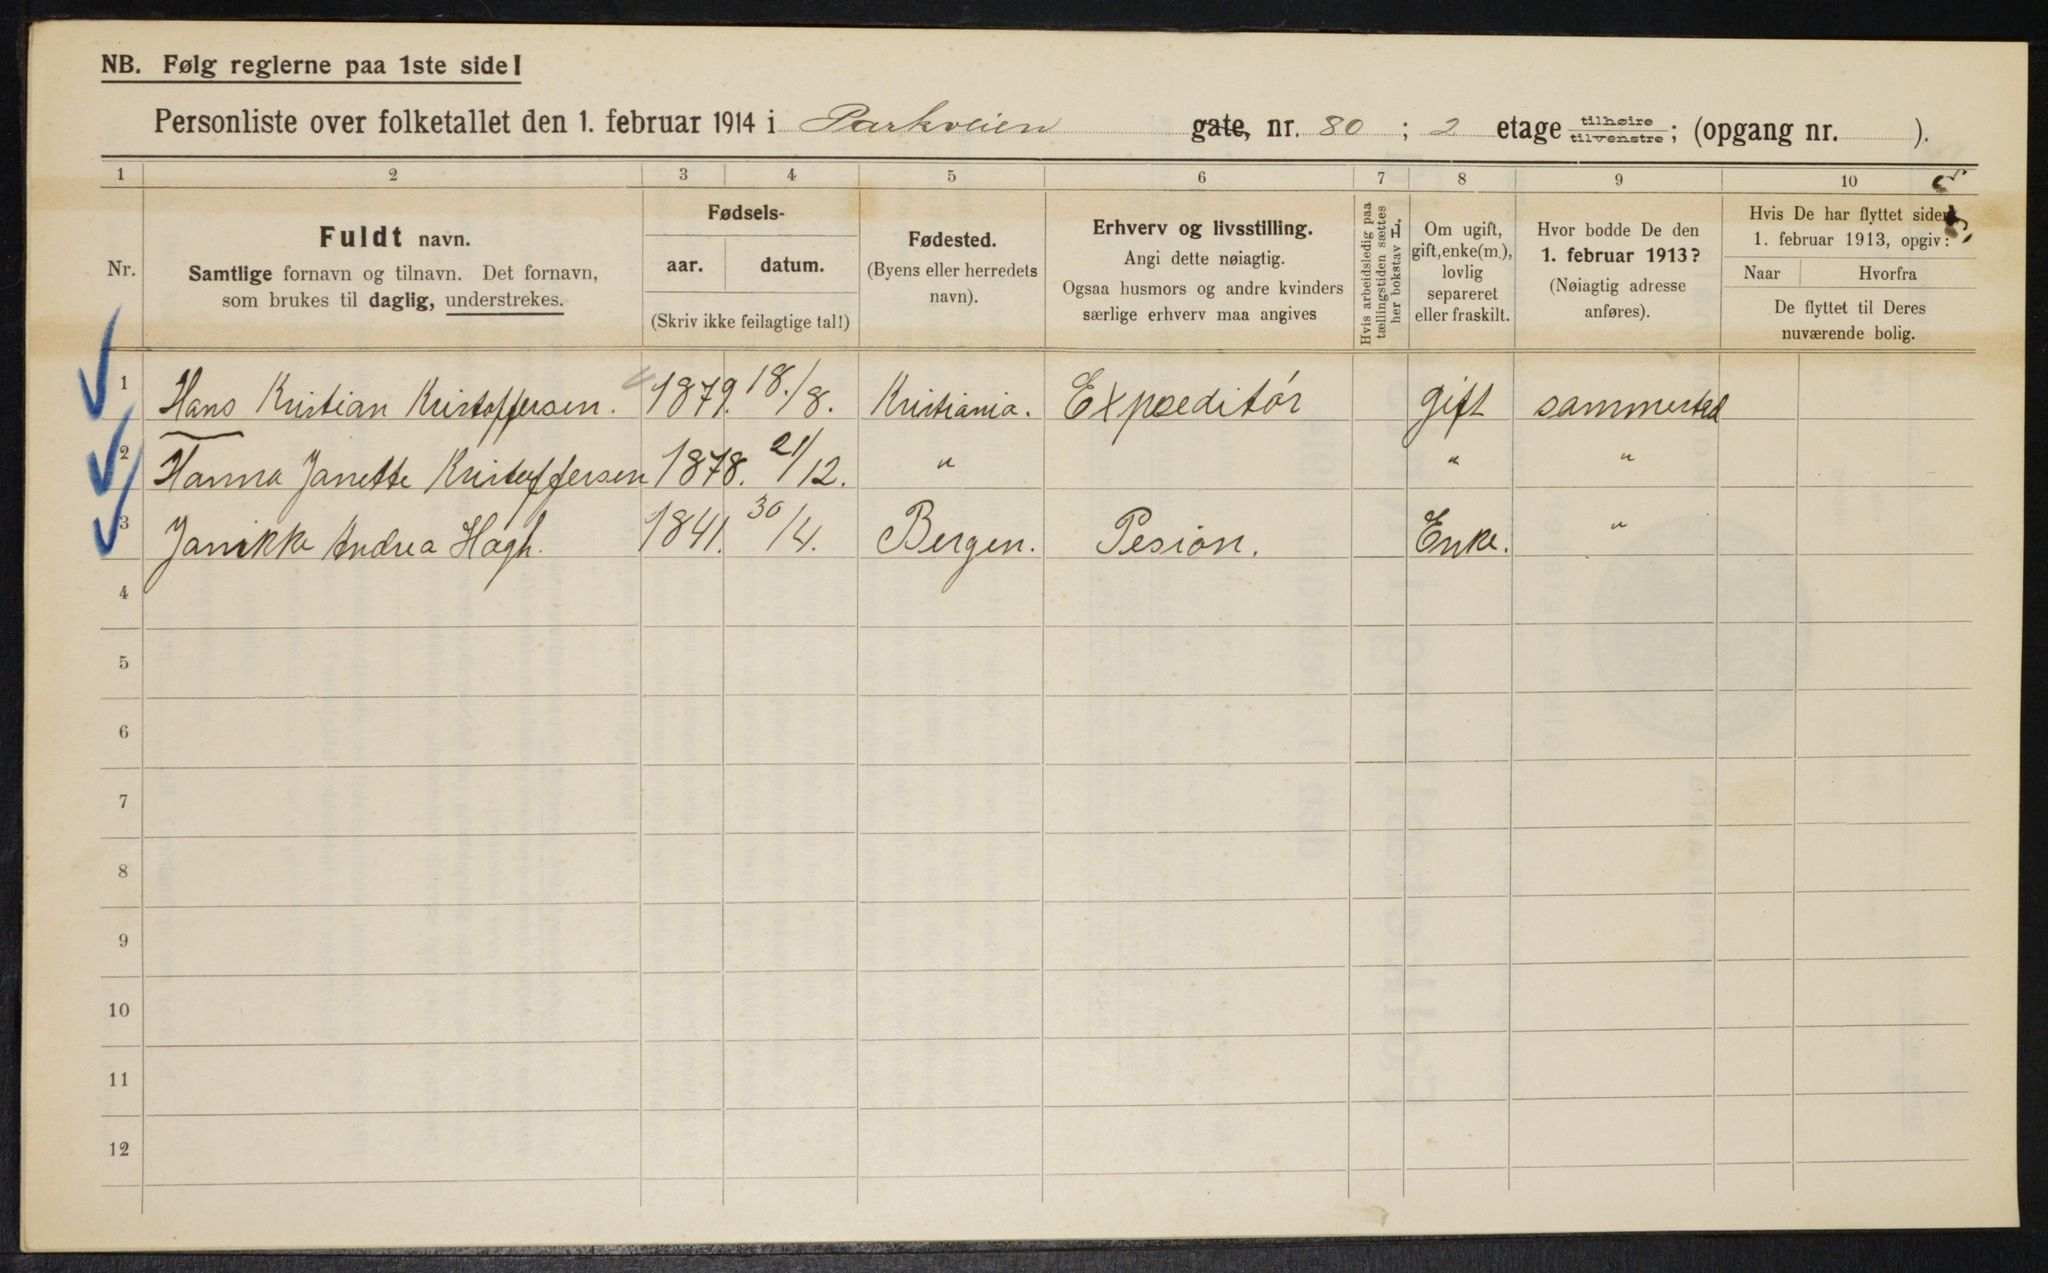 NB. Følg reglerne paa 1ste side!
Personliste over folketallet den 1. februar 1914 i Parkveien gate, nr. 80 ; 2 etage tilhøire tilvenstre; (opgang nr. ).
1 2 3 4 5 6 7 8 9 10
Nr.
Fuldt navn.
Samtlige fornavn og tilnavn. Det fornavn,
som brukes til daglig, understrekes.
Fødsels-
aar. datum.
(Skriv ikke feilagtige tal!)
Fødested.
(Byens eller herredets
navn).
Erhverv og livsstilling.
Angi dette nøiagtig.
Ogsaa husmors og andre kvinders
særlige erhverv maa angives
Hvis arbeidsledig paa
tællingstiden sættes
her bokstav L.
Om ugift,
gift, enke(m.),
lovlig
separeret
eller fraskilt.
Hvor bodde De den
1. februar 1913?
(Nøiagtig adresse
anføres).
Hvis De har flyttet siden
1. februar 1913, opgiv:
Naar Hvorfra
De flyttet til Deres
nuværende bolig.
1 Hans Kristian Kristoffersen. 1879. 18./8. Kristiania. Expoeditór gift sammested
2 Hanna Janette Kristoffersen 1878. 21/12. " " "
3 Janikke Andrea Hagh. 1841. 30/4. Bergen. Pesion. Enke. "
4
5
6
7
8
9
10
11
12